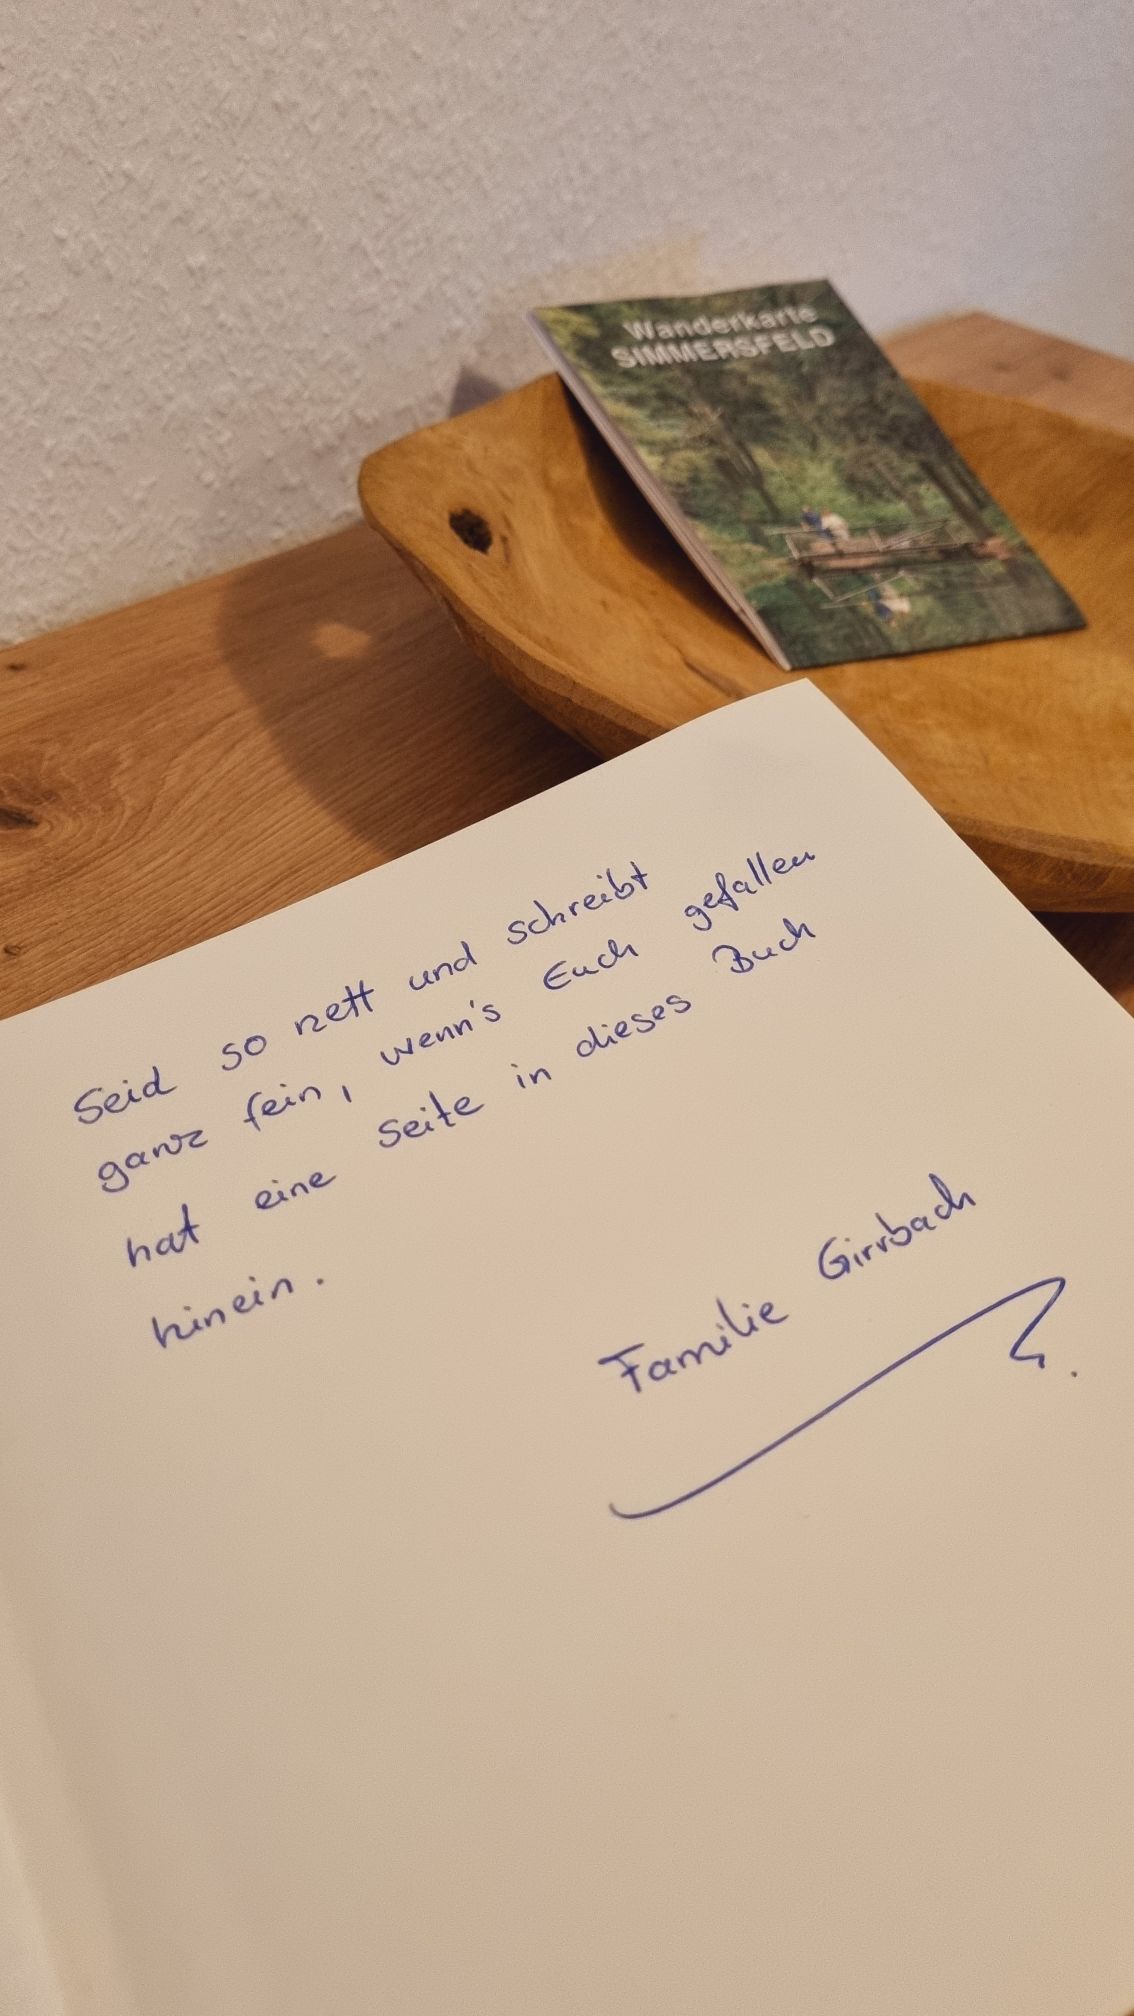 Wanderkarte
SIMMERSFELD
Seid so nett und schreibt
ganz fein, wenn's Euch gefallen
hat eine Seite in dieses Buch
hinein.
Familie Girrbach